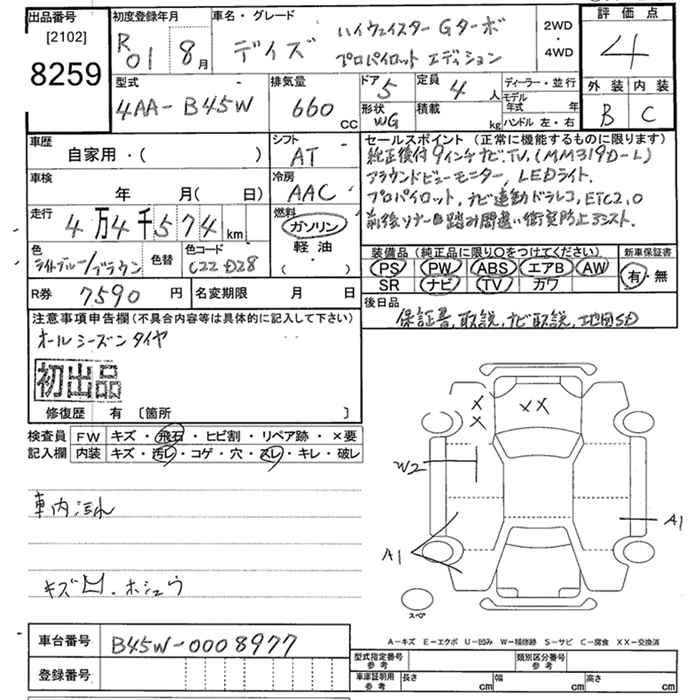 出品番号 [2102] 8259
初度登録年月 R 01 8 月
車名・グレード デイズ ハイウェイスター Gターボ プロパイロット エディション
2WD ・ 4WD
評価点 4
外装 B 内装 C
型式 4AA-B45W
排気量 660 CC
ドア 5 形状 WG
定員 4 人 積載 kg
ディーラー・並行
モデル年式 年
ハンドル 左・右
車歴 自家用・( )
シフト AT
車検 年 月( 日)
冷房 AAC
走行 4万4千574 km
燃料 ガソリン 軽油 ( )
色 ライトブルー/ブラウン 色替 色コード C22 D28
R券 7590 円 名変期限 月 日
セールスポイント (正常に機能するものに限ります)
純正後付9インチナビ.TV.(MM319D-L)
アラウンドビューモニター, LEDライト.
プロパイロット, ナビ連動ドラレコ, ETC2.0
前後ソナー 踏み間違い衝突防止アシスト.
装備品 (純正品に限り○をつけてください) 新車保証書
PS PW ABS エアB AW 有・無
SR ナビ TV カワ
後日品
保証書, 取説, ナビ取説, 地図SD
注意事項申告欄 (不具合内容等は具体的に記入して下さい)
オールシーズンタイヤ
初出品
修復歴 有 〔箇所 〕
検査員 FW キズ・飛石・ヒビ割・リペア跡・×要
記入欄 内装 キズ・汚レ・コゲ・穴・スレ・キレ・破レ
車内汚れ
キズ凹.ホシュウ
X X XX
W2
A1
A1
スペア
A-キズ E-エクボ U-凹み W-補修跡 S-サビ C-腐食 XX-交換済
車台番号 B45W-0008977
登録番号
型式指定番号 参考 類別区分番号 参考
車庫証明用 参考 長さ cm 幅 cm 高さ cm